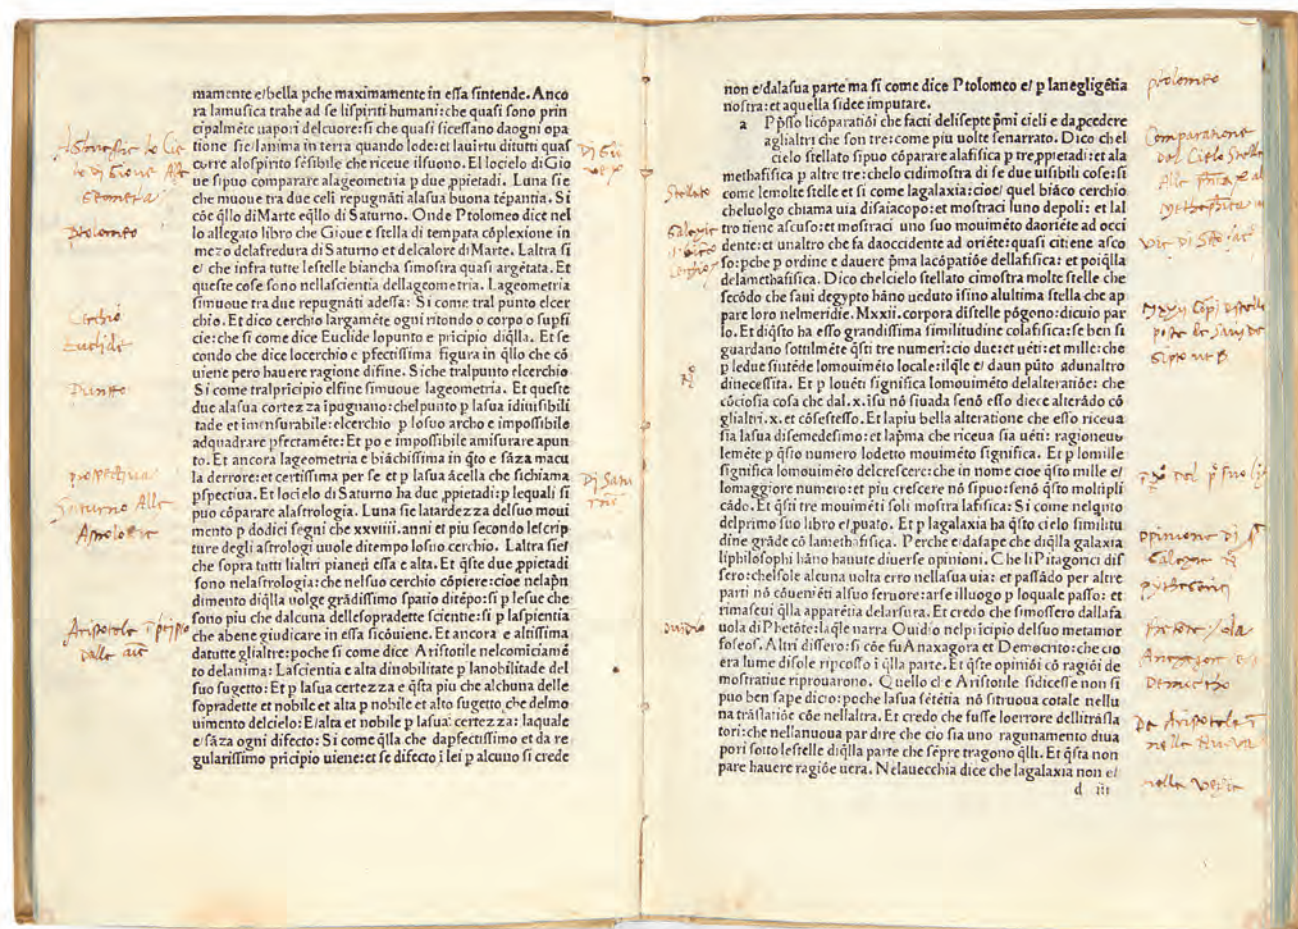 mamente e/bella pche maximamente in essa sintende. Anco
ra lamusica trahe ad se lispiriti humani:che quasi sono prin
cipalmẽte uapori delcuore:si che quasi sicessano daogni opa
tione sie/lanima in terra quando lode:et lauirtu ditutti quas
curre alospirito sẽsibile che riceue ilsuono. El locielo diGio
ue sipuo comparare alageometria p due ,ppietadi. Luna sie
che muoue tra due celi repugnãti alasua buona tẽpantia. Si
cõe q̃llo diMarte eq̃llo di Saturno. Onde Ptolomeo dice nel
lo allegato libro che Gioue e stella di tempata cõplexione in
mezo delafredura di Saturno et delcalore di Marte. Laltra si
e/ che infra tutte lestelle biancha simostra quasi argẽtata. Et
queste cose sono nellascientia dellageometria. Lageometria
simuoue tra due repugnãti adessa: Si come tral punto elcer
chio. Et dico cerchio largamẽte ogni ritondo o corpo o supfi
cie:che si come dice Euclide lopunto e pricipio diq̃lla. Et se
condo che dice locerchio e pfectissima figura in q̃llo che cõ
uiene pero hauere ragione difine. Siche tralpunto elcerchio
Si come tralpricipio elfine simuoue lageometria. Et queste
due alasua cortezza ipugnano:chelpunto p lasua idiuisibili
tade et imensurabile:elcerchio p losuo archo e impossibile
adquadrare pfectamẽte:Et po e impossibile amisurare apun
to. Et ancora lageometria e biãchissima in q̃to e sãza macu
la derrore:et certissima per se et p lasua ãcella che sichiama
pspectiua. Et locielo di Saturno ha due ,ppietadi:p lequali si
puo cõparare alastrologia. Luna sie latardezza delsuo moui
mento p dodici segni che xxviiii.anni et piu secondo lescrip
ture degli astrologi uuole ditempo losuo cerchio. Laltra sie/
che sopra tutti lialtri pianeti essa e alta. Et q̃ste due ,ppietadi
sono nelastrologia:che nelsuo cerchio cõpiere:cioe nelapñ
dimento diq̃lla uolge grãdissimo spatio ditẽpo:si p lesue che
sono piu che dalcuna dellesopradette scientie:si p laspientia
che abene giudicare in essa sicõuiene. Et ancora e altissima
datutte glialtre:poche si come dice Aristotile nelcomiciamẽ
to delanima: Lascientia e alta dinobilitate p lanobilitade del
suo sugetto: Et p lasua certezza e q̃sta piu che alchuna delle
sopradette et nobile et alta p nobile et alto sugetto che delmo
uimento delcielo: E/alta et nobile p lasua certezza: laquale
e/sãza ogni difecto: Si come q̃lla che dapfectissimo et da re
gularissimo pricipio uiene:et se difecto i lei p alcuno si crede
Ptolomeo
Cerchio
Euclide
Punto
prospectiua
Saturno Alla
Di Satu
non e/dalasua parte ma si come dice Ptolomeo e/ p lanegligẽtia
nostra:et aquella sidee imputare.
a P ,psso licõparatiõi che facti delisepte p̃mi cieli e da,pcedere
aglialtri che son tre:come piu uolte senarrato. Dico chel
cielo stellato sipuo cõparare alafisica p tre,ppietadi:et ala
methafisica p altre tre:chelo cidimostra di se due uisibili cose:si
come lemolte stelle et si come lagalaxia:cioe/ quel biãco cerchio
cheluolgo chiama uia disaiacopo:et mostraci luno depoli: et lal
tro tiene ascuso:et mostraci uno suo mouimẽto daoriẽte ad occi
dente:et unaltro che fa daoccidente ad oriẽte:quasi citiene asco
so:pche p ordine e dauere p̃ma lacõpatiõe dellafisica: et poiq̃lla
delamethafisica. Dico chelcielo stellato cimostra molte stelle che
secõdo che saui degypto hãno ueduto ifino alultima stella che ap
pare loro nelmeridie. Mxxii.corpora distelle põgono:dicuio par
lo. Et diq̃sto ha esso grandissima similitudine colafisica:se ben si
guardano sottilmẽte q̃sti tre numeri:cio due:et uẽti:et mille:che
p ledue sintẽde lomouimẽto locale:ilq̃le e/ daun pũto adunaltro
dinecessita. Et p louẽti significa lomouimẽto delalteratiõe: che
cõciosia cosa che dal.x.isu nõ siuada senõ esso diece alterãdo cõ
glialtri.x.et cõsestesso. Et lapiu bella alteratione che esso riceua
sia lasua disemedesimo:et lap̃ma che riceua sia uẽti: ragioneuo
lemẽte p q̃sto numero lodetto mouimẽto significa. Et p lomille
significa lomouimẽto delcrescere:che in nome cioe q̃sto mille e/
lomaggiore numero:et piu crescere nõ sipuo:senõ q̃sto moltipli
cãdo. Et q̃sti tre mouimẽti soli mostra lafisica: Si come nelq̃nto
delprimo suo libro e/,puato. Et p lagalaxia ha q̃sto cielo similitu
dine grãde cõ lamethafisica. Perche e/dasape che diq̃lla galaxia
liphilosophi hãno hauute diuerse opinioni. Che li Pitagorici dis
sero:chelsole alcuna uolta erro nellasua uia: et passãdo per altre
parti nõ cõueniẽti alsuo feruore:arse illuogo p loquale passo: et
rimaseui q̃lla apparẽtia delarsura. Et credo che simossero dallafa
uola di Phetõte:laq̃le narra Ouidio nelpricipio delsuo metamor
foseos. Altri dissero:si cõe fuAnaxagora et Democrito:che cio
era lume disole ripcosso i q̃lla parte. Et q̃ste opiniõi cõ ragiõi de
mostratiue riprouarono. Quello che Aristotile sidicesse non si
puo ben sape dicio:poche lasua sẽtẽtia nõ sitruoua cotale nellu
na trãslatiõe cõe nellaltra. Et credo che fusse loerrore dellitrãsla
tori:che nellanuoua par dire che cio sia uno ragunamento diua
pori sotto lestelle diq̃lla parte che sẽpre tragono q̃lli. Et q̃sta non
pare hauere ragiõe uera. Nelauecchia dice che lagalaxia non e/
d iii
ptolomeo
Comparatione
Dal Cielo Stella
Stellato
Ouidio
opinione di
Democrito
nella Nuova
nella Vechia